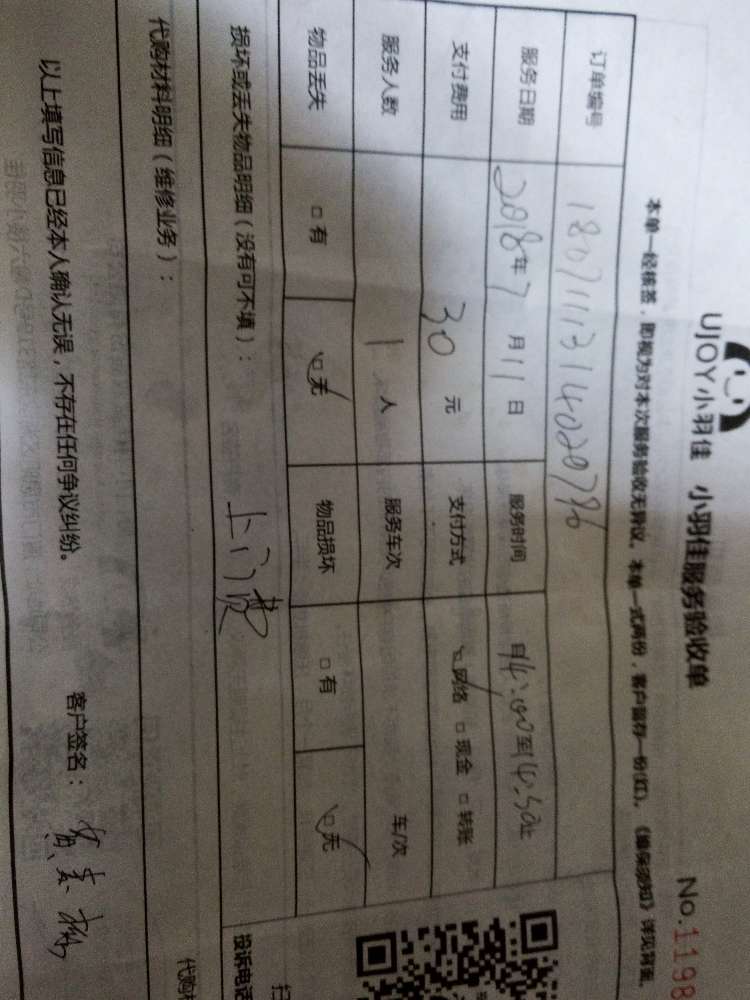 UJOY小羽佳 小羽佳服务验收单 No.1198
本单一经核签，即视为对本次服务验收无异议。本单一式两份，客户留存一份(红)。《维保须知》详见背面。
订单编号 1807111314020796
服务日期 2018年7月11日 服务时间 自14:00至14:50止
支付费用 30元 支付方式 □网络 □现金 □转账
服务人数 1人 服务车次 车/次
物品丢失 □有 □无 物品损坏 □有 □无
损坏或丢失物品明细（没有可不填）： 上门费
投诉电话
代购材料明细（维修业务）：
以上填写信息已经本人确认无误，不存在任何争议纠纷。 客户签名：